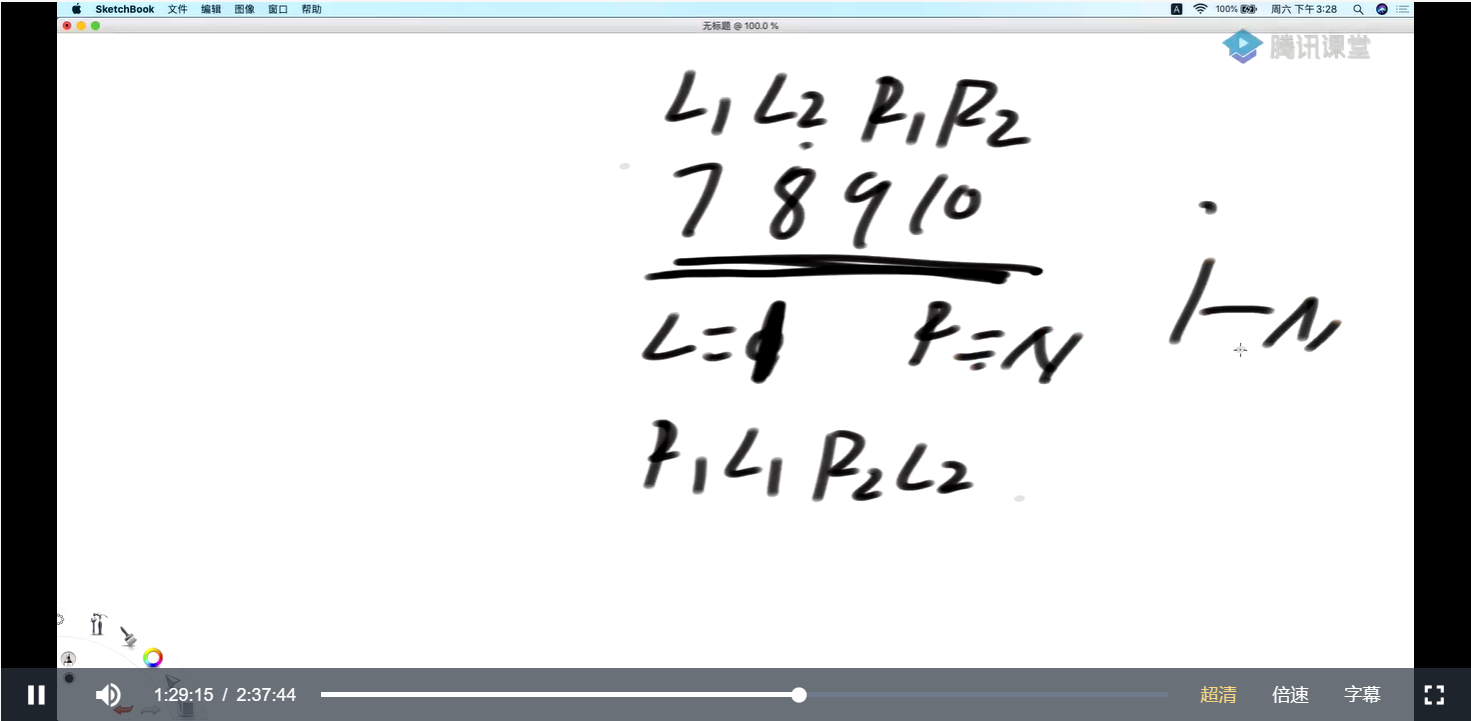 SketchBook 文件 编辑 图像 窗口 帮助 A 100% 周六 下午3:28
无标题 @ 100.0 %
腾讯课堂
L1 L2 R1 R2
7 8 9 10
L= R=N
1-N
R1 L1 R2 L2
1:29:15 / 2:37:44 超清 倍速 字幕